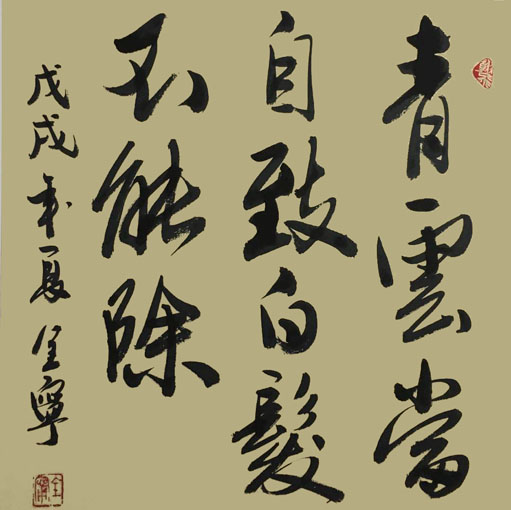 青雲當
自致白髮
不能除
戊戌年夏全寧